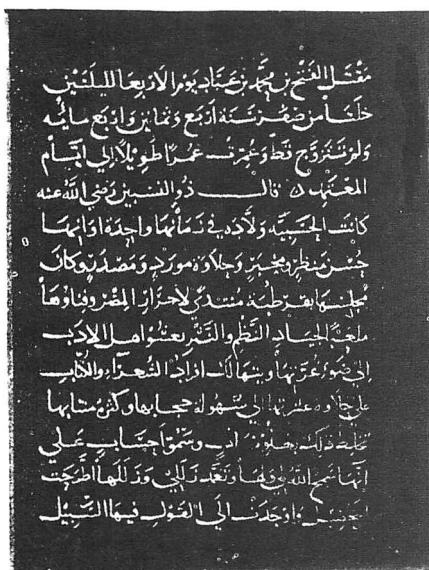 مقتل الفتح بن محمد بن عباد يوم الاربعا لليلتين
خلتا من صفر سنة اربع وثمانين واربع مائه
ولم تتزوج قط وعمرت عمرا طويلا الي ايام
المعتمد قال ذو النسبين رضي الله عنه
كانت الحسيبه ولاده في زمانها واحدة اوانها
حسن منظر ومخبر وحلاوة مورد ومصدر وكان
مجلسها بقرطبة منتدي لاحرار المصر وفناؤها
ملعبا لجياد النظم والنثر يعشوا اهل الادب
الي ضوء غرتها ويتهالك افراد الشعراء والكتاب
علي حلاوة عشرتها الي سهولة حجابها وكثرة منتابها
تخلط ذلك اداب وسمو احساب علي
انها سمح الله لي ولها وتغمد زللي وزللها اطرحت
التحصيل واوجدت الي القول فيها السبيل